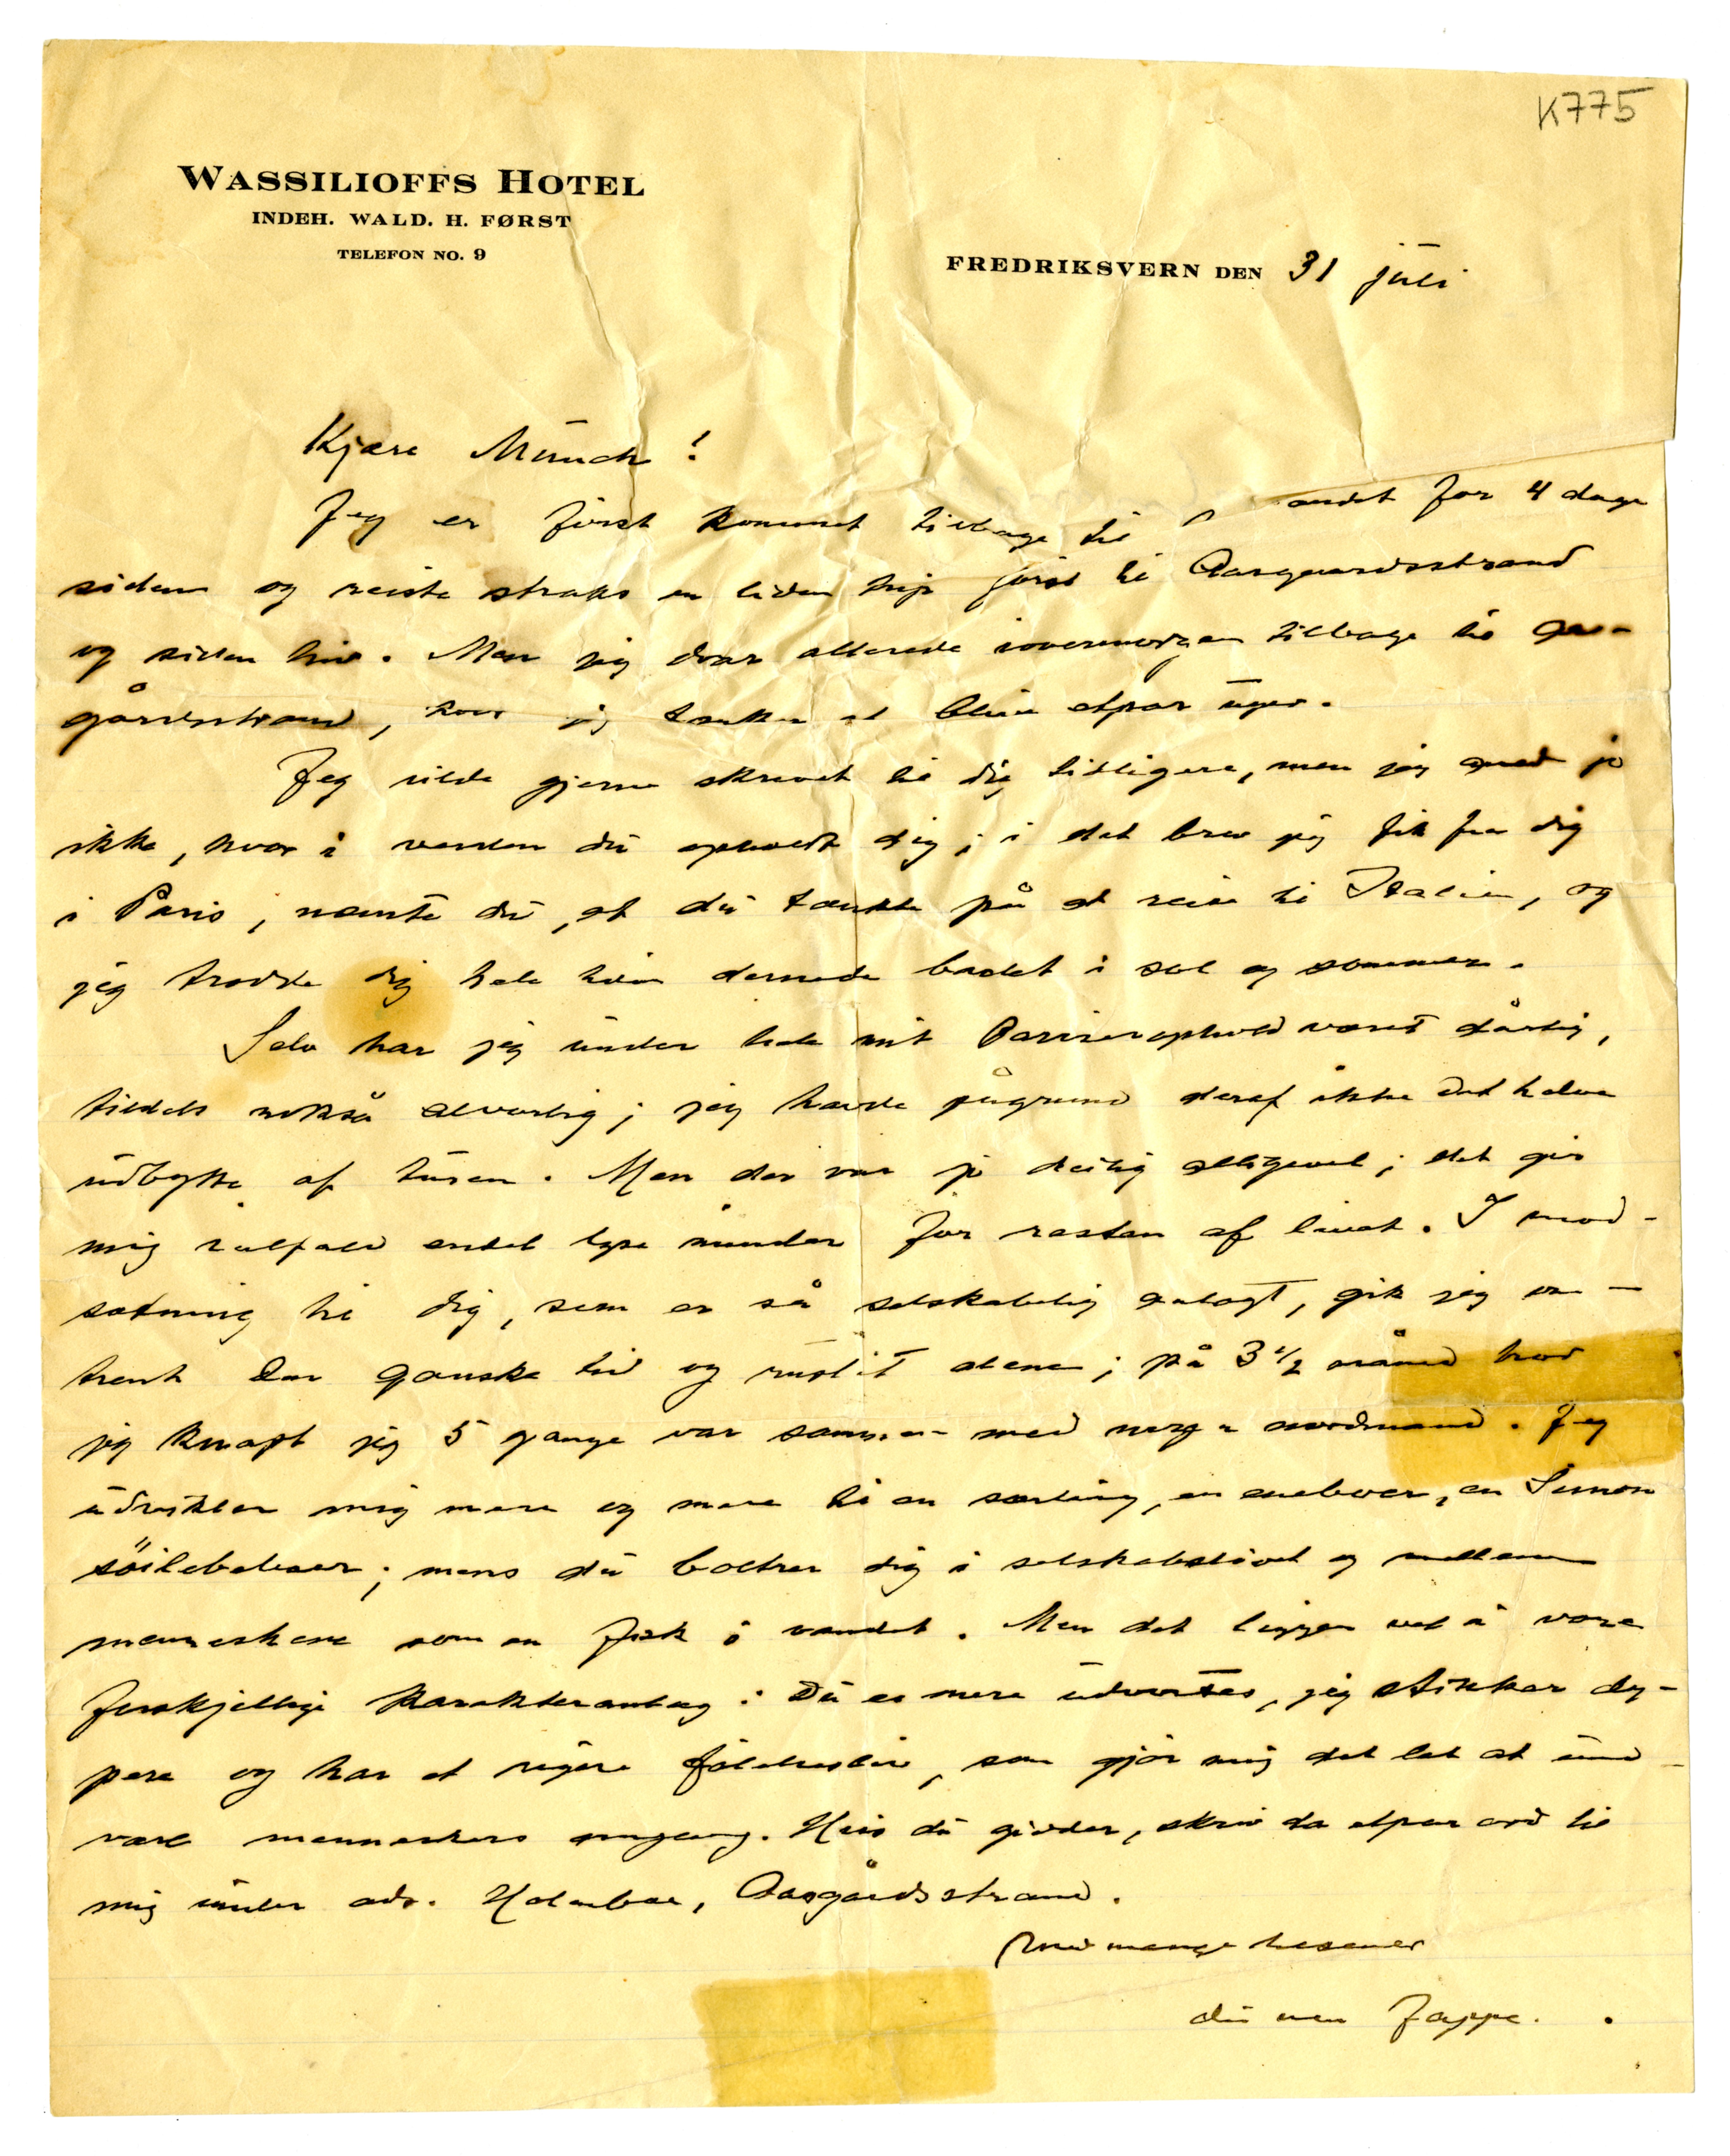 K775
WASSILIOFFS HOTEL
INDEH. WALD. H. FØRST
TELEFON NO. 9
FREDRIKSVERN DEN 31 juli
Kjære Munch!
Jeg er först kommet tilbage til andet for 4 dage
siden og reiste straks en liden trip först til Aasgaardsstrand
og siden hid. Men jeg drar allerede iovermorgen tilbage til Aas-
gårdsstrand, hvor jeg tænker at bli et par uger.
Jeg vilde gjerne skrevet til dig tidligere, men jeg jo
ikke, hvor i verden du opholdt dig; i det brev jeg fik fra dig
i Paris, nævnte du, at du tænkte på at reise til Italien, og
jeg trodde dig hele tiden dernede badet i sol og sommer.
Selv har jeg under hele mit Pariserophold været dårlig,
tildels også alvorlig; jeg havde pågrund deraf ikke det halve
udbytte af turen. Men der var jo deilig alligevel; det gir
mig ialfald endel lyse minder for resten af livet. I mod-
sætning til dig, som er så selskabelig anlagt, gik jeg om-
trent der ganske tid og alene; på 3½ måned tror
jeg knapt jeg 5 gange var sammen med nogen nordmænd. Jeg
udvikler mig mere og mere til en særling, en eneboer, en Simon
söileboer; mens du boltrer dig i selskabslivet og mellem
menneskene som en fisk i vandet. Men det ligger vel i vore
forskjellige karakteranlæg: Du er mere udvortes, jeg stikker dy-
pere og har et rigere fölelsesliv, som gjör mig det let at und-
være menneskers omgang. Hvis du gidder, skriv da et par ord til
mig under adr. Holmboe, Aasgårdsstrand.
Med mange hilsener
din ven Jappe.